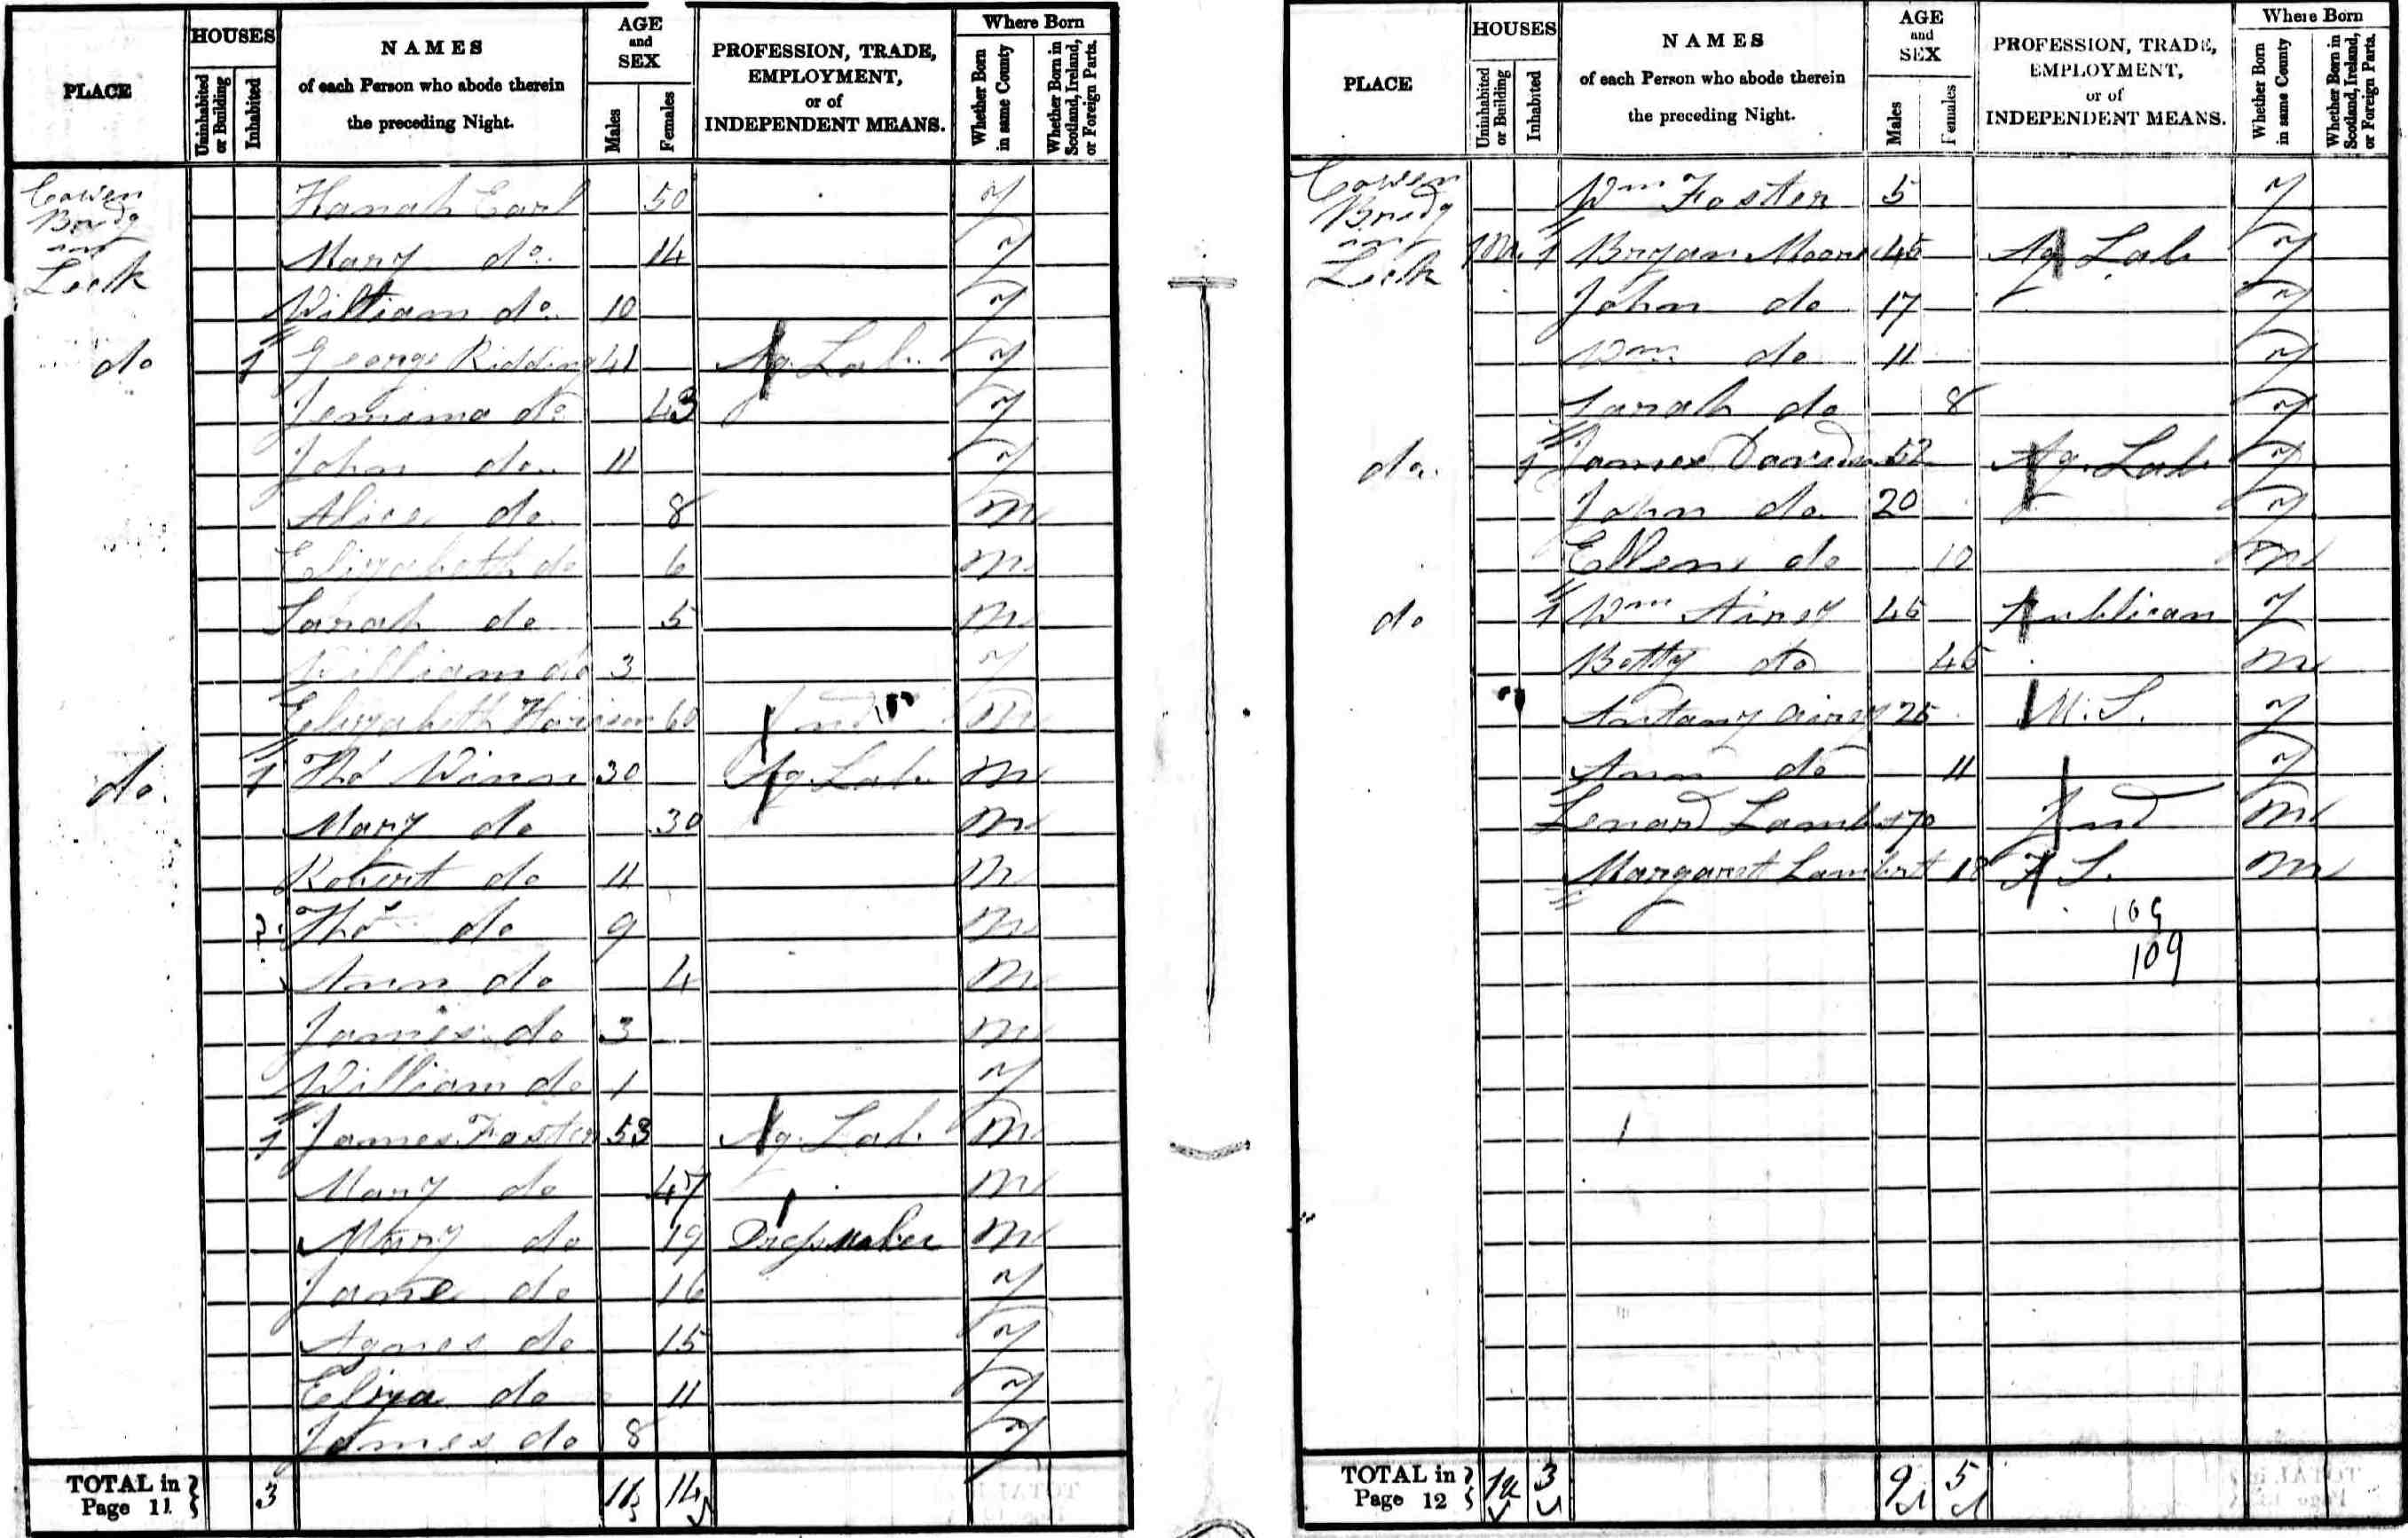 PLACE
HOUSES
Uninhabited or Building
Inhabited
NAMES
of each Person who abode therein
the preceding Night.
AGE
and
SEX
Males
Females
PROFESSION, TRADE,
EMPLOYMENT,
or of
INDEPENDENT MEANS.
Where Born
Whether Born in same County
Whether Born in Scotland, Ireland, or Foreign Parts.
Cowen
Bridg
in
Leck
Hanah Earl 50 y
Mary do. 14 y
William do. 10 y
do 1 George Ridding 41 Ag. Lab. y
Jemima do. 43 y
John do.. 11 y
Alice do. 8 n
Elizabeth do 6 n
Sarah do 5 n
William do 3 y
Elizabeth Harison 60 Ind n
do. 1 Thos Winn 30 Ag. Lab. n
Mary do 30 n
Robert do 11 n
Thos do 9 n
Ann do 4 n
James do 3 n
William do 1 y
1 James Foster 53 Ag. Lab. n
Mary do 47 n
Mary do 19 Dressmaker n
Jane do 16 y
Agnes do 15 y
Eliza do 11 y
James do 8 y
TOTAL in
Page 11 3 11 14
PLACE
HOUSES
Uninhabited or Building
Inhabited
NAMES
of each Person who abode therein
the preceding Night.
AGE
and
SEX
Males
Females
PROFESSION, TRADE,
EMPLOYMENT,
or of
INDEPENDENT MEANS.
Where Born
Whether Born in same County
Whether Born in Scotland, Ireland, or Foreign Parts.
Cowen
Bridg
in
Leck
Wm Foster 5 y
1 Bryan Moore 45 Ag Lab y
John do 17 y
Wm do 11 y
Sarah do 8 y
do. 1 James Davidson 52 Ag. Lab. y
John do. 20 y
Ellen do 10 n
do 1 Wm Airey 45 Publican y
Betty do 45 n
Antany Airey 25 M.S. y
Ann do 11 y
Lenard Lambert 70 Ind n
Margaret Lambert 18 F.S. n
109
109
TOTAL in
Page 12 3 9 5